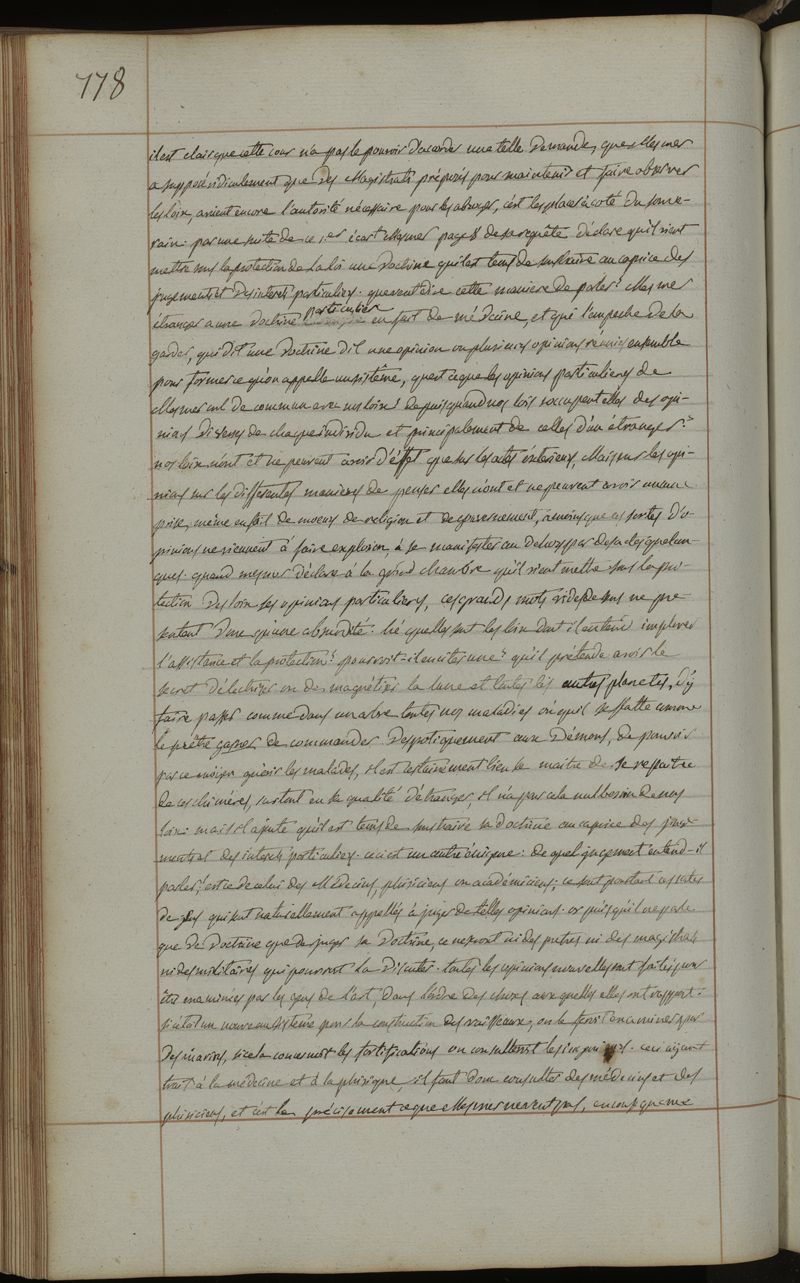 778
il est clair que cette cour n'a pas le pouvoir d'accorder une telle demande, que Mesmer
a supposé ridiculement que des Magistrats préposés pour maintenir et faire observer
les loix, avient encore l'autorité nécessaire pour les abroger, c'est les placer à coté du souve-
rain. par une suite de ce 1.er écart Mesmer page 8 de sa requête déclare qu'il vient
mettre sous la protection de la loi une doctrine qu'il est tems de soustraire au caprice des
jugements et des interets particuliers. que veut dire cette maniere de parler? Mesmer
étranger a une doctrine particuliere en fait de médecine, et qui l'empeche de la
garder, qui dit une doctrine dit une opinion ou plusieurs opinions réunies ensemble
pour former ce qu'on appelle un sistême, qu'est ce que les opinions particulieres de
Mesmer ont de commun avec nos loix? depuis quand nos lois s'occupent elles des opi-
nions diverses de chaque individu et principalement de celles d'un étranger?
nos loix n'ont et ne peuvent avoir d'éffet que sur les actes éxterieurs, Mais sur les opi-
nions sur les differentes manieres de penser elles n'ont et ne peuvent avoir aucune
prise, même en fait de moeurs de religion et de gouvernement, à moins que ces sortes d'o-
pinions ne viennent à faire explosion, à se manifester au dehors par des actes quelcon-
ques. quand mesmer déclare à la grand chambre qu'il vient mettre sous la pro-
tection des loix ses opinions particulieres, ces grands mots vides de sens ne pre-
sentent d'une qu'une absurdité: hé quelles sont les loix dont il entend implorer
l'assistance et la protection? pourroit-il en citer une? qu'il prétende avoir le
secret d'électriser ou de magnétiser la lune et toutes les autres planetes, d'y
faire passer comme dans un arbre toutes nos maladies ou qu'il se flatte comme
le prêtre gasner de commander despotiquement aux démons, de pouvoir
par ce moyen guérir les malades, il est certainement bien le maitre de se repaitre
de ces chiméres, surtout en sa qualité d'étranger, il n'a pas cela nul besoin de nos
loix. mais il ajoute qu'il est tems de soustraire sa doctrine au caprice des juge-
ments et des interets particuliers. ceci est un autre énigme: de quel jugement entend-il
parler? est ce de celui des Médecins, phisiciens ou académiciens; ce sont pourtant ces sortes
de gens qui sont naturellement appellés à juger de telles opinions. or puisqu'il ne parle
que de doctrine que de juger sa doctrine, ce ne sont ni des pretres ni des magistrats
ni des militaires qui pourront la discuter. toutes les opinions nouvelles sont faites pour
être examinées par les gens de l'art, dans l'ordre des choses aux quelles elles ont rapport:
si c'etoit un nouveau sistême pour la construction des vaisseaux, on le feroit examiner par
des marins, si cela concernoit les fortifications on consulteroit les ingenieurs. ceci aijant
trait à la médecine et à la phisique, il faut donc consulter des médecins et des
phisiciens, et c'est la précisement ce que Mesmer ne veut pas,